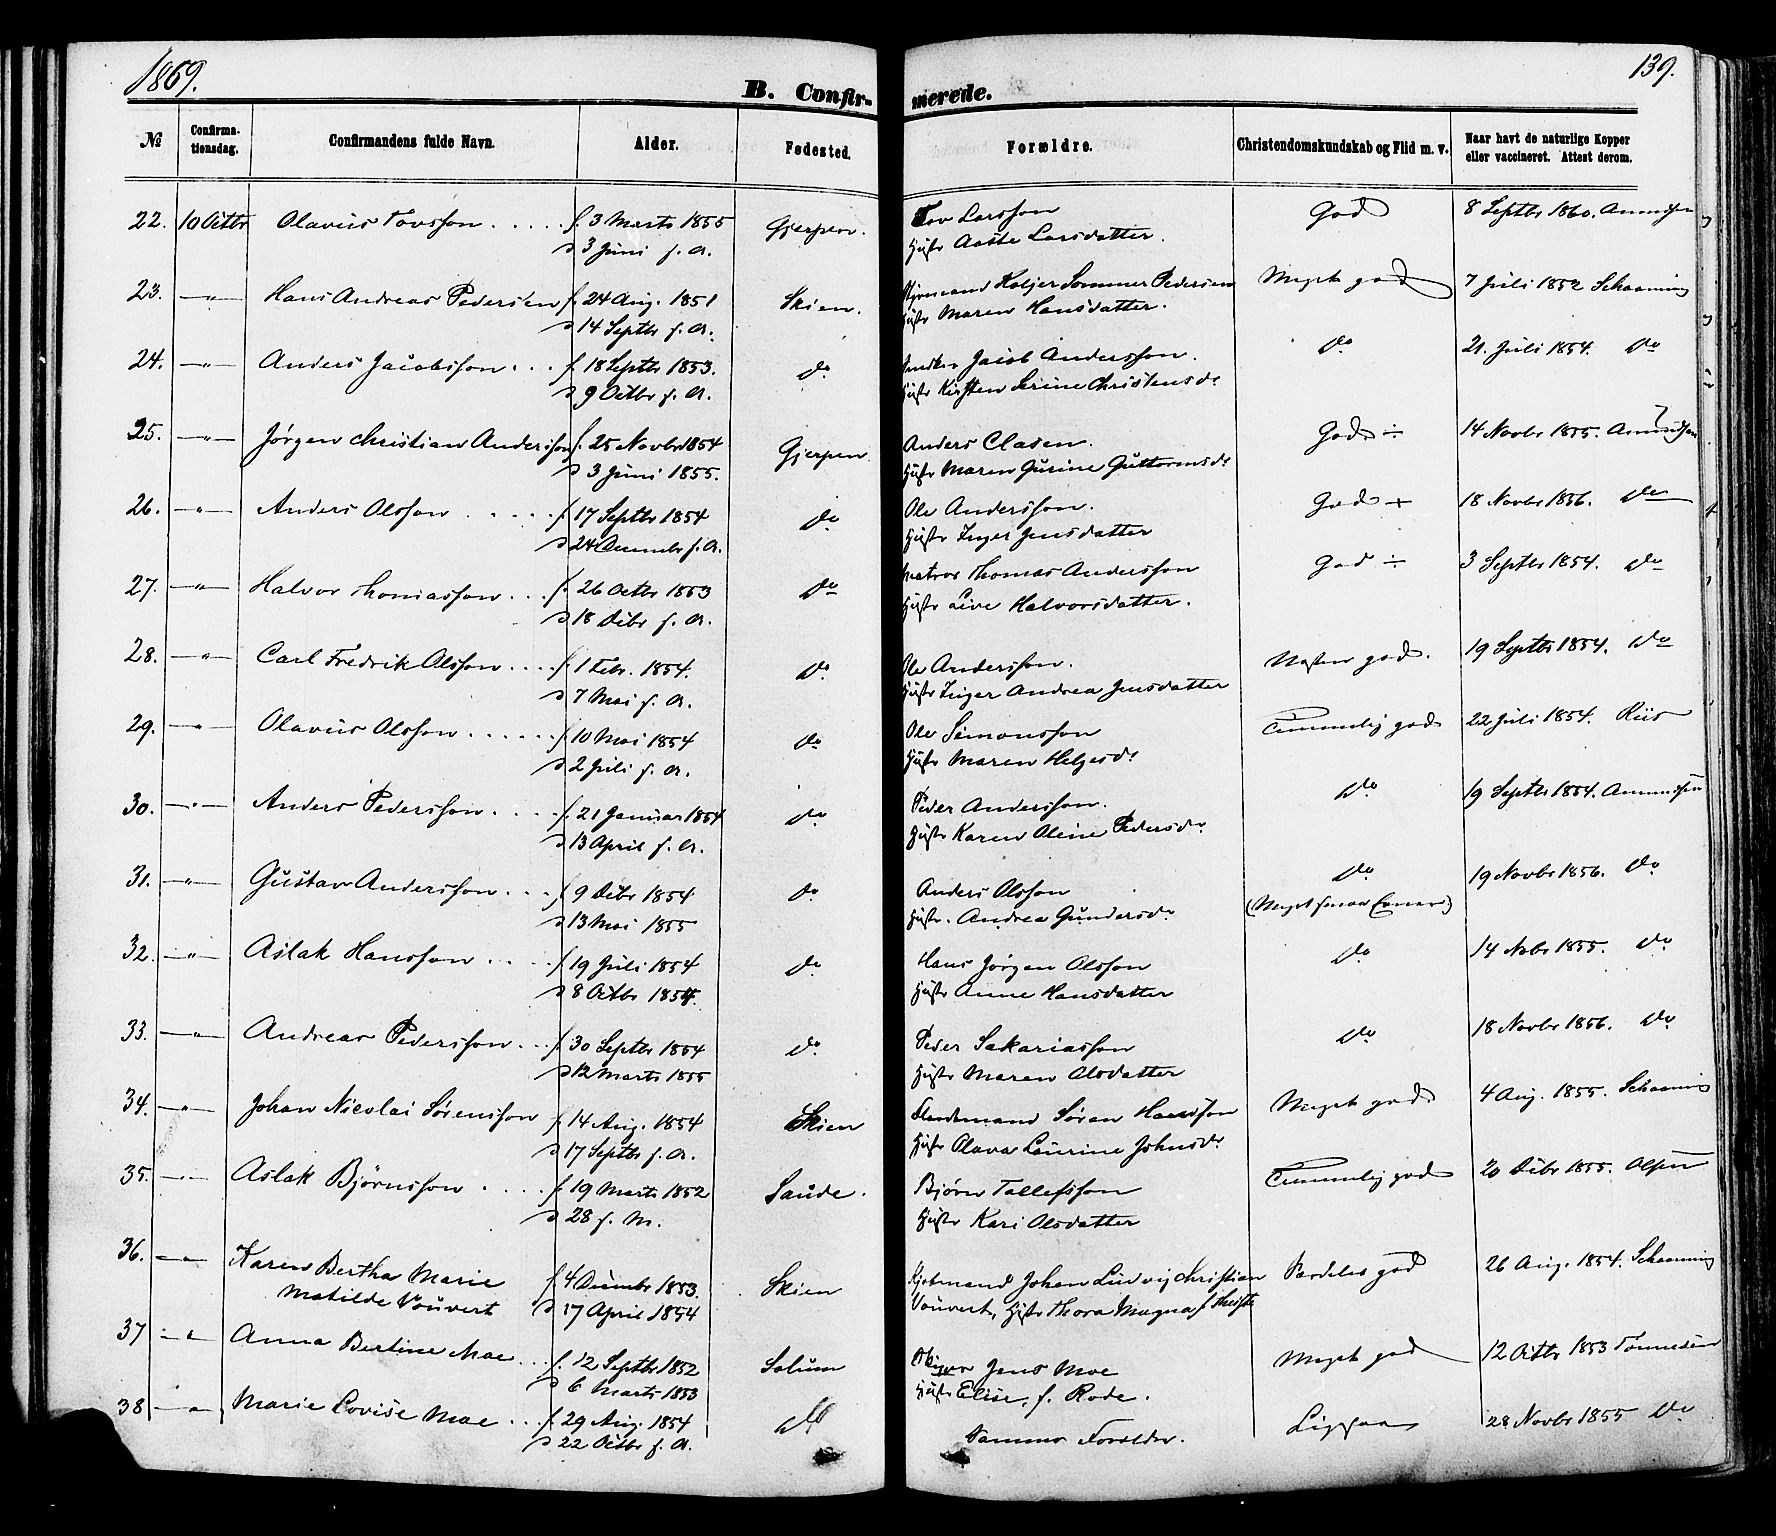 1869.
139.
B. Confir-
merede.
№
Confirma-
tionsdag.
Confirmandens fulde Navn.
Alder.
Fødested.
Forældre.
Christendomskundskab og Flid m. v.
Naar havt de naturlige Kopper
eller vaccineret. Attest derom.
22. 10 Octbr Olavus Tovsson . . . . . f. 3 Marts 1855 Gjerpen. Tov Larsson God 8 Septbr 1860. Amundsen
d 3 Juni s. A. Hustr Aaste Larsdatter.
23. — " — Hans Andreas Pedersen f. 24 Aug. 1851 Skien. Holjer Sommer Pedersen Meget god 7 Juli 1852 Schaaning
d 14 Septbr s. A. Hustr Maren Hansdatter.
24. — " — Anders Jacobsson . . . f. 18 Septbr 1853. do Jacob Andersson. do 21. Juli 1854. do
d 9 Octbr s. A. Hustr Kirsten Serine Christensdr
25. — " — Jørgen Christian Andersson f. 25 Novbr 1854 Gjerpen Anders Clasen. God ÷ 14 Novbr 1855. Amundsen
d 3 Juni 1855. Hustr Maren Gurine Guttormsdr
26. — " — Anders Olsson . . . . . f. 17 Septbr 1854 do Ole Andersson. God ÷ 18 Novbr 1856. do
d 24 Decembr s. A. Hustr Inger Jensdatter
27. — " — Halvor Thomasson . . . f. 26 Octbr 1853 do Matros Thomas Andersson God ÷ 3 Septbr 1854. do
d 18 Decbr s. A. Hustr Live Halvorsdatter.
28. — " — Carl Fredrik Olsson . . . . f. 1 Febr. 1854. do Ole Andersson. Næsten god. 19 Septbr 1854. do
d 7 Mai s. A. Hustr Inger Andrea Jensdatter
29. — " — Olavus Olsson . . . . . . f. 10 Mai 1854 do Ole Simonsson Temmelig god 22 Juli 1854. Riis
d 2 Juli s. A. Hustr Maren Helgesdr
30. — " — Anders Pedersson . . . . f. 21 Januar 1854 do Peder Andersson. do 19 Septbr 1854. Amundsen
d 13 April s. A. Hustr Karen Oline Pedersdr
31. — " — Gustav Andersson . . . f. 9 Decbr 1854 do Anders Olsson do 19 Novbr 1856. do
d 13 Mai 1855 Hustr. Andrea Gundersdr (Meget smaa Evner)
32. — " — Aslak Hansson . . . . . f. 19 Juli 1854 do Hans Jørgen Olsson do 14 Nobr 1855. do
d 8 Octbr 1854. Hustr Anne Hansdatter
33. — " — Andreas Pedersson . . . f. 30 Septbr 1854 do Peder Sakariasson do 18 Novbr 1856. do
d 12 Marts 1855 Hustr Maren Olsdatter
34. — " — Johan Nicolai Sørensson f. 14 Aug. 1854 Skien Søren Hansson Meget god 4 Aug. 1855. Schaaning
d 17 Septbr s. A. Hustr Olava Laurine Johnsdr
35. — " — Aslak Bjørnsson . . . . f. 19 Marts 1852 Saude. Bjørn Tollefsson Temmelig god 20 Decbr 1855. Olsen
d 28 s. M. Hustr Kari Olsdatter
36. — " — Karen Bertha Marie f. 4 Decembr 1853. Skien Johan Ludvig Christian Særdeles god 26 Aug. 1854. Schaaning
Matilde Vauvert d 17 April 1854 Vauvert, Hustr Thora Magna f.
37 — " — Anna Bertine Moe . . . f. 12 Septbr 1852 Solum Jens Moe Meget god 12 Octbr 1853 Tønnesen
d 6 Marts 1853 Hustr Elise, f. Rode.
38 — " — Marie Lovise Moe . . . f. 29 Aug. 1854 do Samme Forældre. Ligesaa 28 Novbr 1855 do
d 22 Octbr s. A.